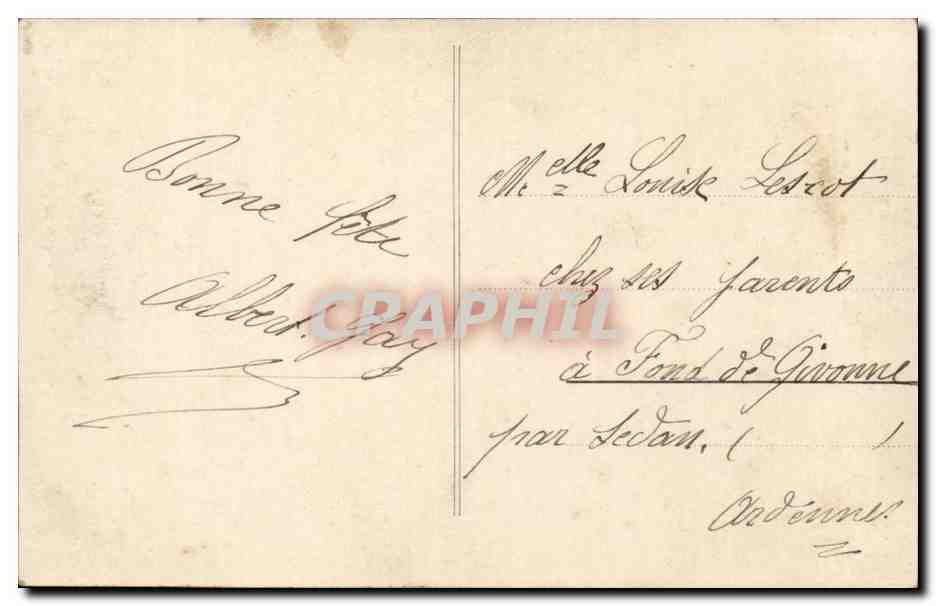 Bonne fête
Albert. Gay
M.elle Louise Lescot
chez ses parents
à Fond de Givonne
par Sedan. ( )
Ardennes.
CRAPHIL